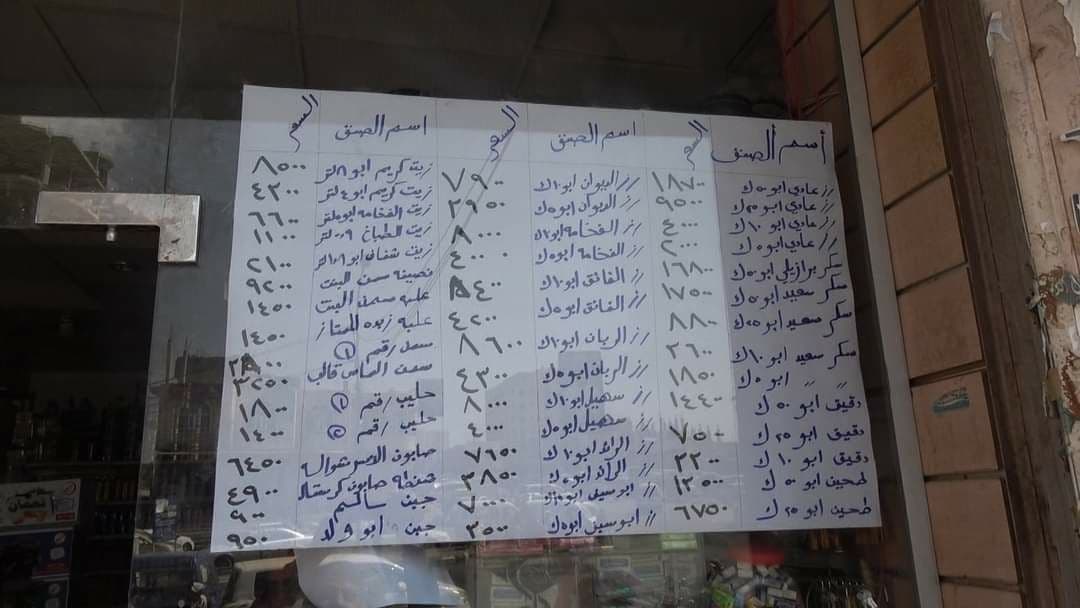 أسم الصنق السعر
رز عادي ابو ٥٠ ك ١٨٧٠٠
رز عادي ابو ٢٥ ك ٩٥٠٠
رز عادي ابو ١٠ ك ٤٠٠٠
رز عادي ابو ٥ ك ٢٠٠٠
سكر برازيلي ابو ٥٠ ك ١٦٨٠٠
سكر سعيد ابو ٥٠ ك ١٧٥٠٠
سكر سعيد ابو ٢٥ ك ٨٨٠٠
سكر سعيد ابو ١٠ ك ٢٦٠٠
〃 〃 ابو ٥ ك ١٨٥٠
دقيق ابو ٥٠ ك ١٤٤٠٠
دقيق ابو ٢٥ ك ٧٥٠٠
دقيق ابو ١٠ ك ٢٢٠٠
طحين ابو ٥٠ ك ١٢٥٠٠
طحين ابو ٢٥ ك ٦٧٥٠
اسم الصنق السعر
رز الديوان ابو ١٠ ك ٧٩٠٠
رز الديوان ابو ٥ ك ٢٩٥٠
رز الفخامة ابو ١٠ ك ٨٠٠٠
رز الفخامة ابو ٥ ك ٤٠٠٠
رز الفائق ابو ١٠ ك ٨٤٠٠
رز الفائق ابو ٥ ك ٤٢٠٠
رز الريان ابو ١٠ ك ٨٦٠٠
رز الريان ابو ٥ ك ٤٣٠٠
رز سهيل ابو ١٠ ك ٨٠٠٠
رز سهيل ابو ٥ ك ٤٠٠٠
رز الرائد ابو ١٠ ك ٧٦٥٠
رز الرائد ابو ٥ ك ٣٨٥٠
رز ابو سيل ابو ١٠ ك ٧٠٠٠
رز ابو سيل ابو ٥ ك ٣٥٠٠
اسم الصنق السعر
زيت كريم ابو ٨ لتر ٨٥٠٠
زيت كريم ابو ٤ لتر ٤٢٠٠
زيت الفخامة ابو لتر ٦٦٠٠
زيت الطباخ لتر ١١٠٠
زيت شفاف ابو لتر ٢١٠٠
سمن البنت ٩٢٠٠
علبه سمن البنت ١٤٥٠
علبه زبده الممتاز ١٤٥٠
سمن رقم (١) ٢٨٠٠
سمن الماس قالب ٣٢٥٠
حليب رقم (١) ١٨٠٠
حليب رقم (٢) ١٤٠٠
صابون شواله ٦٤٥٠
صابون كرستال ٤٩٠٠
جبن ٩٠٠
جبن ابو ولد ٩٥٠